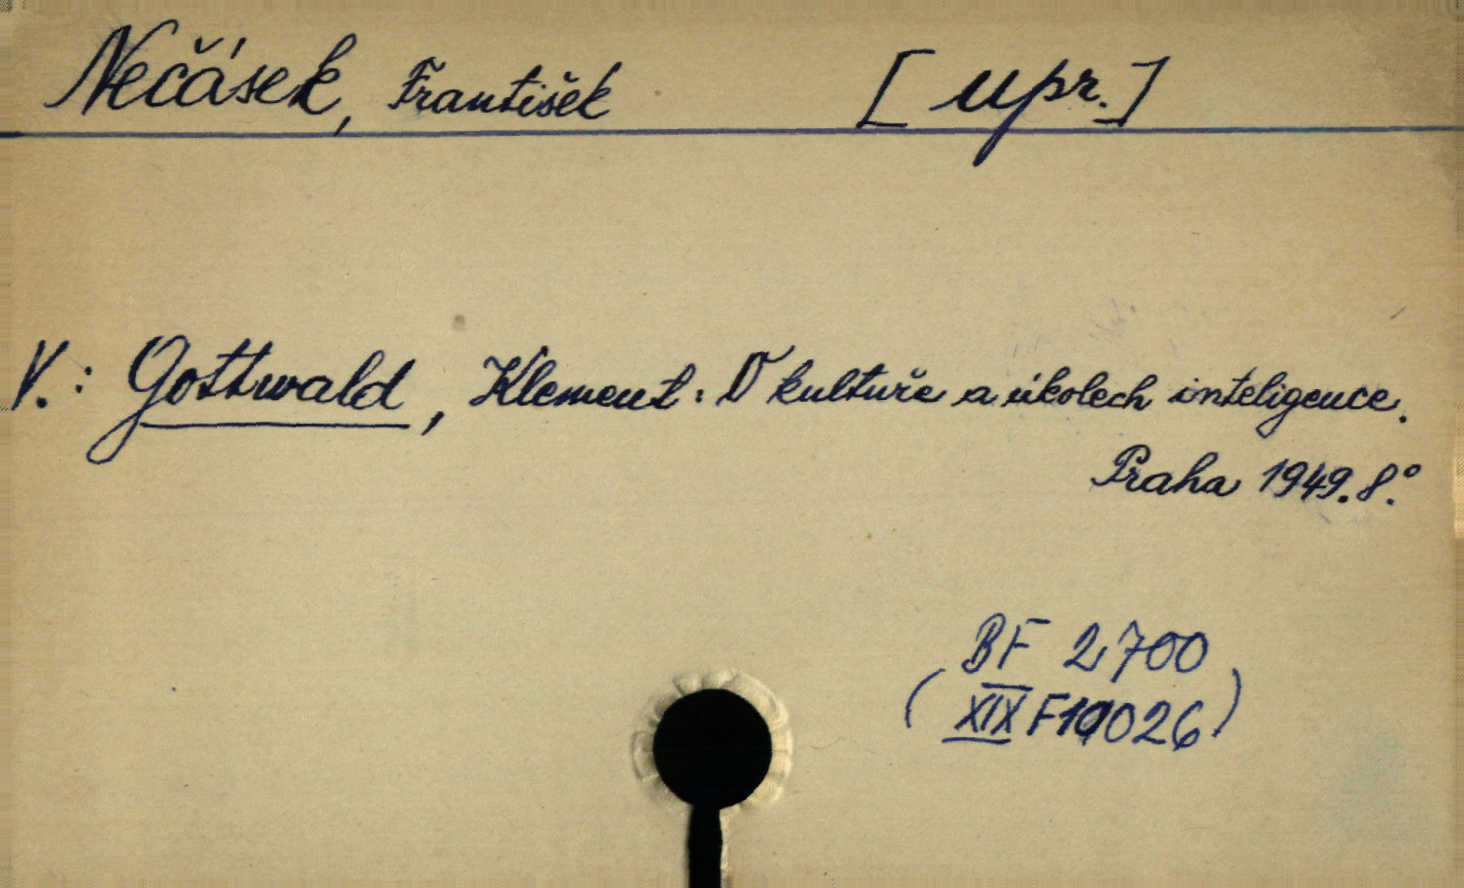 Nečásek, František [upr.]
V.: Gottwald, Klement: O kultuře a úkolech inteligence.
Praha 1949. 8.°
BF 2700
(XIX F 19026)